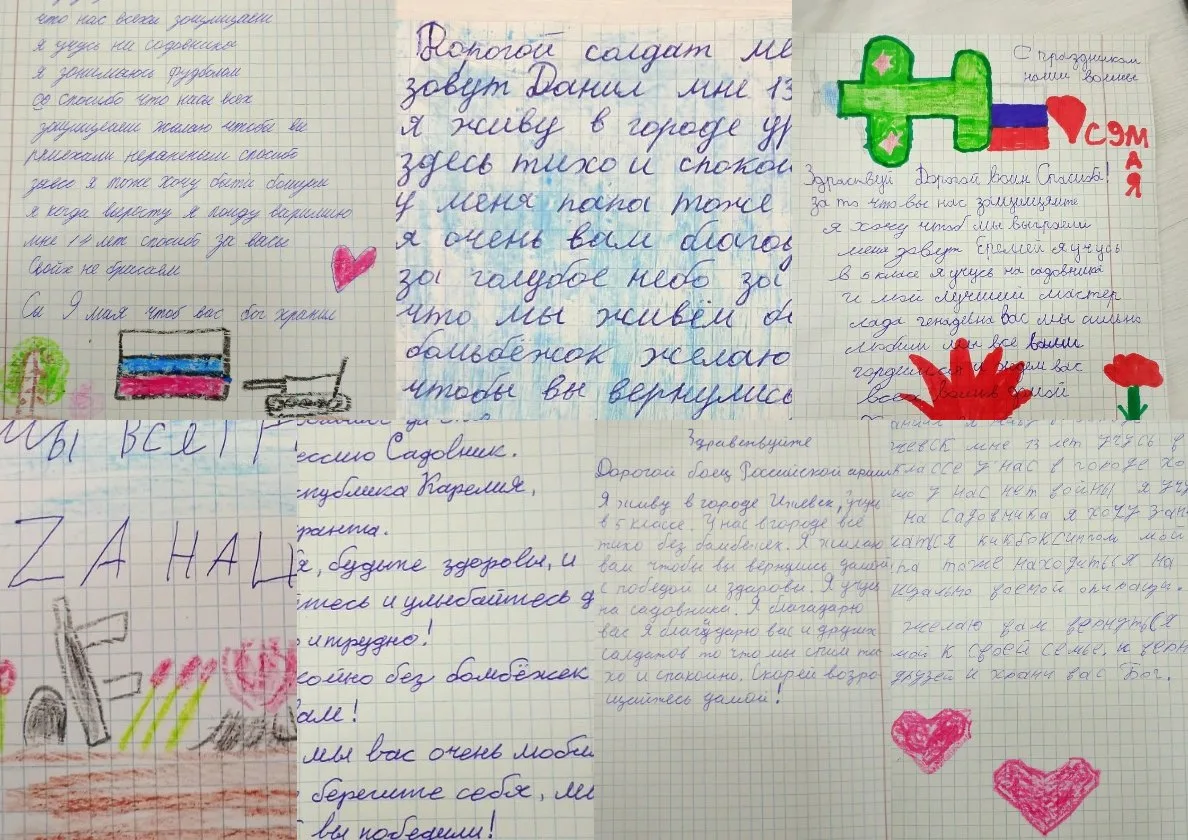 что нас всеха защищаем
я учусь на садовника
я занимаюсь футболом
спосибо что насы всех
защищаем желаю чтобы ви
приехали нераненым спосибо
завсо я тоже хочу быти бойцем
я когда вырасту я пойду варимию
мне 14 лет спосибо за васы
Свойх не бросаем
Си 9 мая чтоб вас бог хранил
Дорогой солдат ме
зовут Данил мне 13
я живу в городе
здесь тихо и спокой
у меня папа тоже
я очень вам благо
за голубое небо за
что мы живём
бомбёжок желаю
чтобы вы вернулись
С праздником
наши воины
С 9 М
А
Я
Здраствуй Дорогой воин Спасиба!
за то что вы нас защищяите
я хочу чтоб мы выграли
меня зовут Еремей я учусь
в 5 класе я учусь на садовника
и мой лучший мастер
лада генадевна Вас мы сильно
любим мы все вами
гордимся и ждем вас
всех домой
МЫ ВСЕ
ZА НАШ
ессию Садовник.
спублика Карелия,
ранта.
, будьте здоровы, и
тесь и улыбайтесь д
и трудно!
койно без бомбёжек
ам!
мы вас очень люби
берегите себя, ми
вы победили!
Здравствуите
Дорогой боец Российской армии
Я живу в городе Ижевск, учусь
в 5 классе. У нас в городе все
тихо без бомбежек. Я желаю
вам чтобы вы вернулись домой
с победой и здоровы. Я учусь
на садовника. Я благадарю
вас Я благадарю вас и других
солдатов то что мы спим ти
хо и спакойно. Скореи возро
щайтесь дамой!
жевск мне 13 лет учусь в
классе у нас в городе хо
шо у нас нет войны я учу
на садовника я хожу зан
матся кикбоксингом мой
па тоже находиться на
циально военой операци.
желаю вам вернуться
мой к своей семье, к
друзей и храни вас Бог.